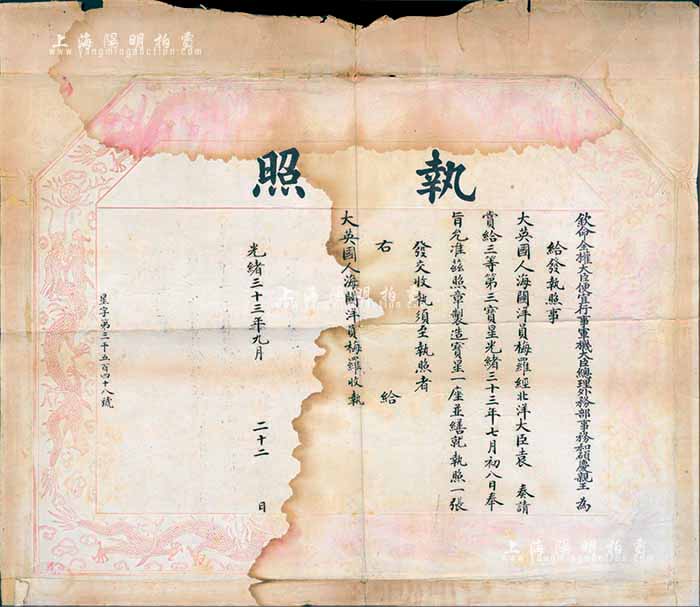 執照
欽命全權大臣便宜行事軍機大臣總理外務部事務和碩慶親王 為
給發執照事
大英國人海關洋員梅羅經北洋大臣袁 奏請
賞給三等第三寶星光緒三十三年七月初八日奉
旨允准茲照章製造寶星一座並繕就執照一張
發交收執須至執照者
右 給
大英國人海關洋員梅羅收執
光緒三十三年九月 二十二 日
星字第三千五百四十八號
上海陽明拍賣
www.yangmingauction.com
上海陽明拍賣
www.yangmingauction.com
上海陽明拍賣
www.yangmingauction.com